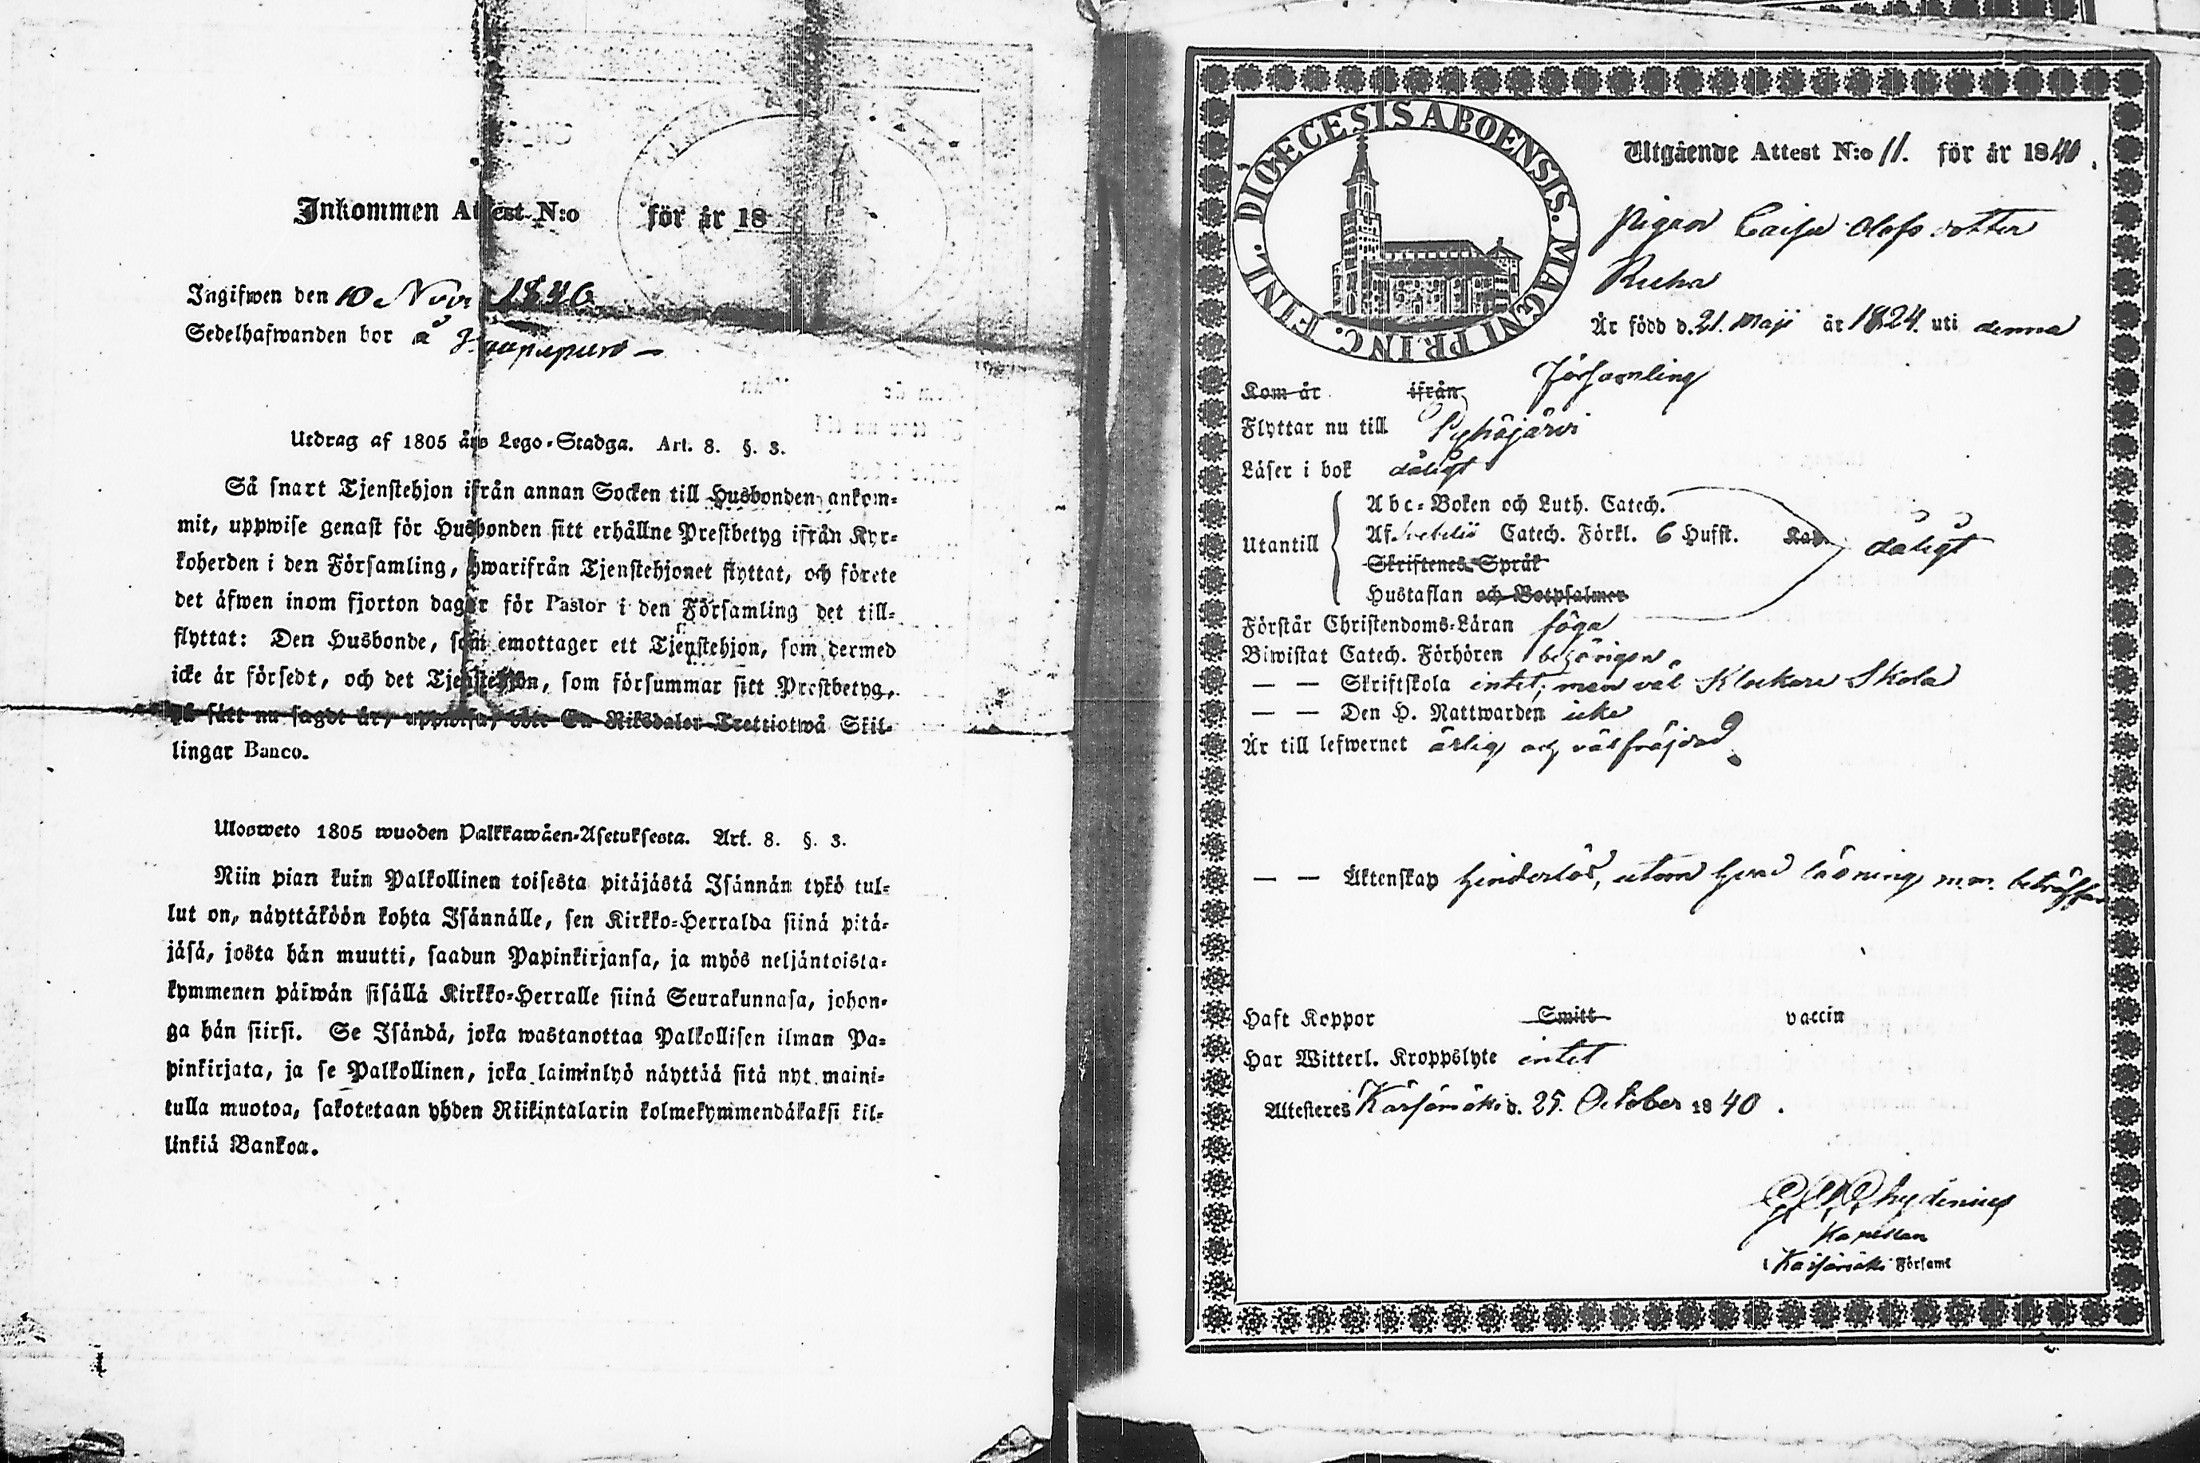 Inkommen Attest N:o för år 18
Ingifwen den 10 Novr 1840
Sedelhafwanden bor å
Utdrag af 1805 års Lego-Stadga. Art. 8. §. 3.
Så snart Tjenstehjon ifrån annan Socken till Husbonden ankom-
mit, uppwise genast för Husbonden sitt erhållne Prestbetyg ifrån Kyr-
koherden i den Församling, hwarifrån Tjenstehjonet flyttat, och förete
det äfwen inom fjorton dagar för Pastor i den Församling det till-
flyttat: Den Husbonde, som emottager ett Tjenstehjon, som dermed
icke är försedt, och det Tjenstehjon, som försummar sitt Prestbetyg,
på sätt nu sagdt är, uppwisa, böte En Riksdaler Trettiotwå Skil-
lingar Banco.
Ulosweto 1805 wuoden Palkkawäen-Asetuksesta. Art. 8. §. 3.
Niin pian kuin Palkollinen toisesta pitäjästä Isännän tykö tul-
lut on, näyttäköön kohta Isännälle, sen Kirkko-Herralda siinä pitä-
jäsä, josta hän muutti, saadun Papinkirjansa, ja myös neljäntoista-
kymmenen päiwän sisällä Kirkko-Herralle siinä Seurakunnasa, johon-
ga hän siirsi. Se Isändä, joka wastanottaa Palkollisen ilman Pa-
pinkirjata, ja se Palkollinen, joka laiminlyö näyttää sitä nyt maini-
tulla muotoa, sakotetaan yhden Riikintalarin kolmekymmendäkaksi kil-
linkiä Bankoa.
DIOECESIS ABOENSIS. MAGNI PRINC. FINL.
Utgående Attest N:o 11. för år 1840.
Pigan Caisa Olofsdotter
Ruha
Är född d. 21. Maji år 1824. uti denna
Församling
Kom år ifrån
Flyttar nu till Pyhäjärvi
Läser i bok dåligt
Utantill
Abc-Boken och Luth. Catech.
Af Catech. Förkl. 6 Hufst. Kap. dåligt
Skriftenes Språk
Hustaflan och Botpsalmer
Förstår Christendoms-Läran föga
Biwistat Catech. Förhören behörigen
— — Skriftskola intet, men väl Klockare Skola
— — Den H. Nattwarden icke
Är till lefwernet ärlig och välfräjdad
— — Äktenskap hinderlös, utom hvad läsning m.m. beträffar
Haft Koppor Smitt vaccin
Har Witterl. Kroppslyte intet
Attesteres Kärsämäki d. 25. October 1840.
Chydenius
Kapellan
i Kärsämäki Församl